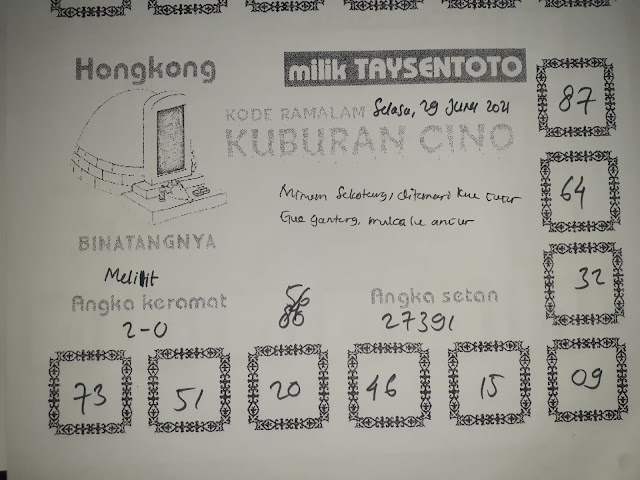 Hongkong
milik TAYSENTOTO
KODE RAMALAM Selasa, 29 Juni 2021
KUBURAN CINO
87
Minum Sekoteng, ditemani kue cucur
Gue ganteng, muka lu ancur
64
BINATANGNYA
Melilit
32
Angka keramat
Angka setan
2-0
56
86
27391
73
51
20
46
15
09